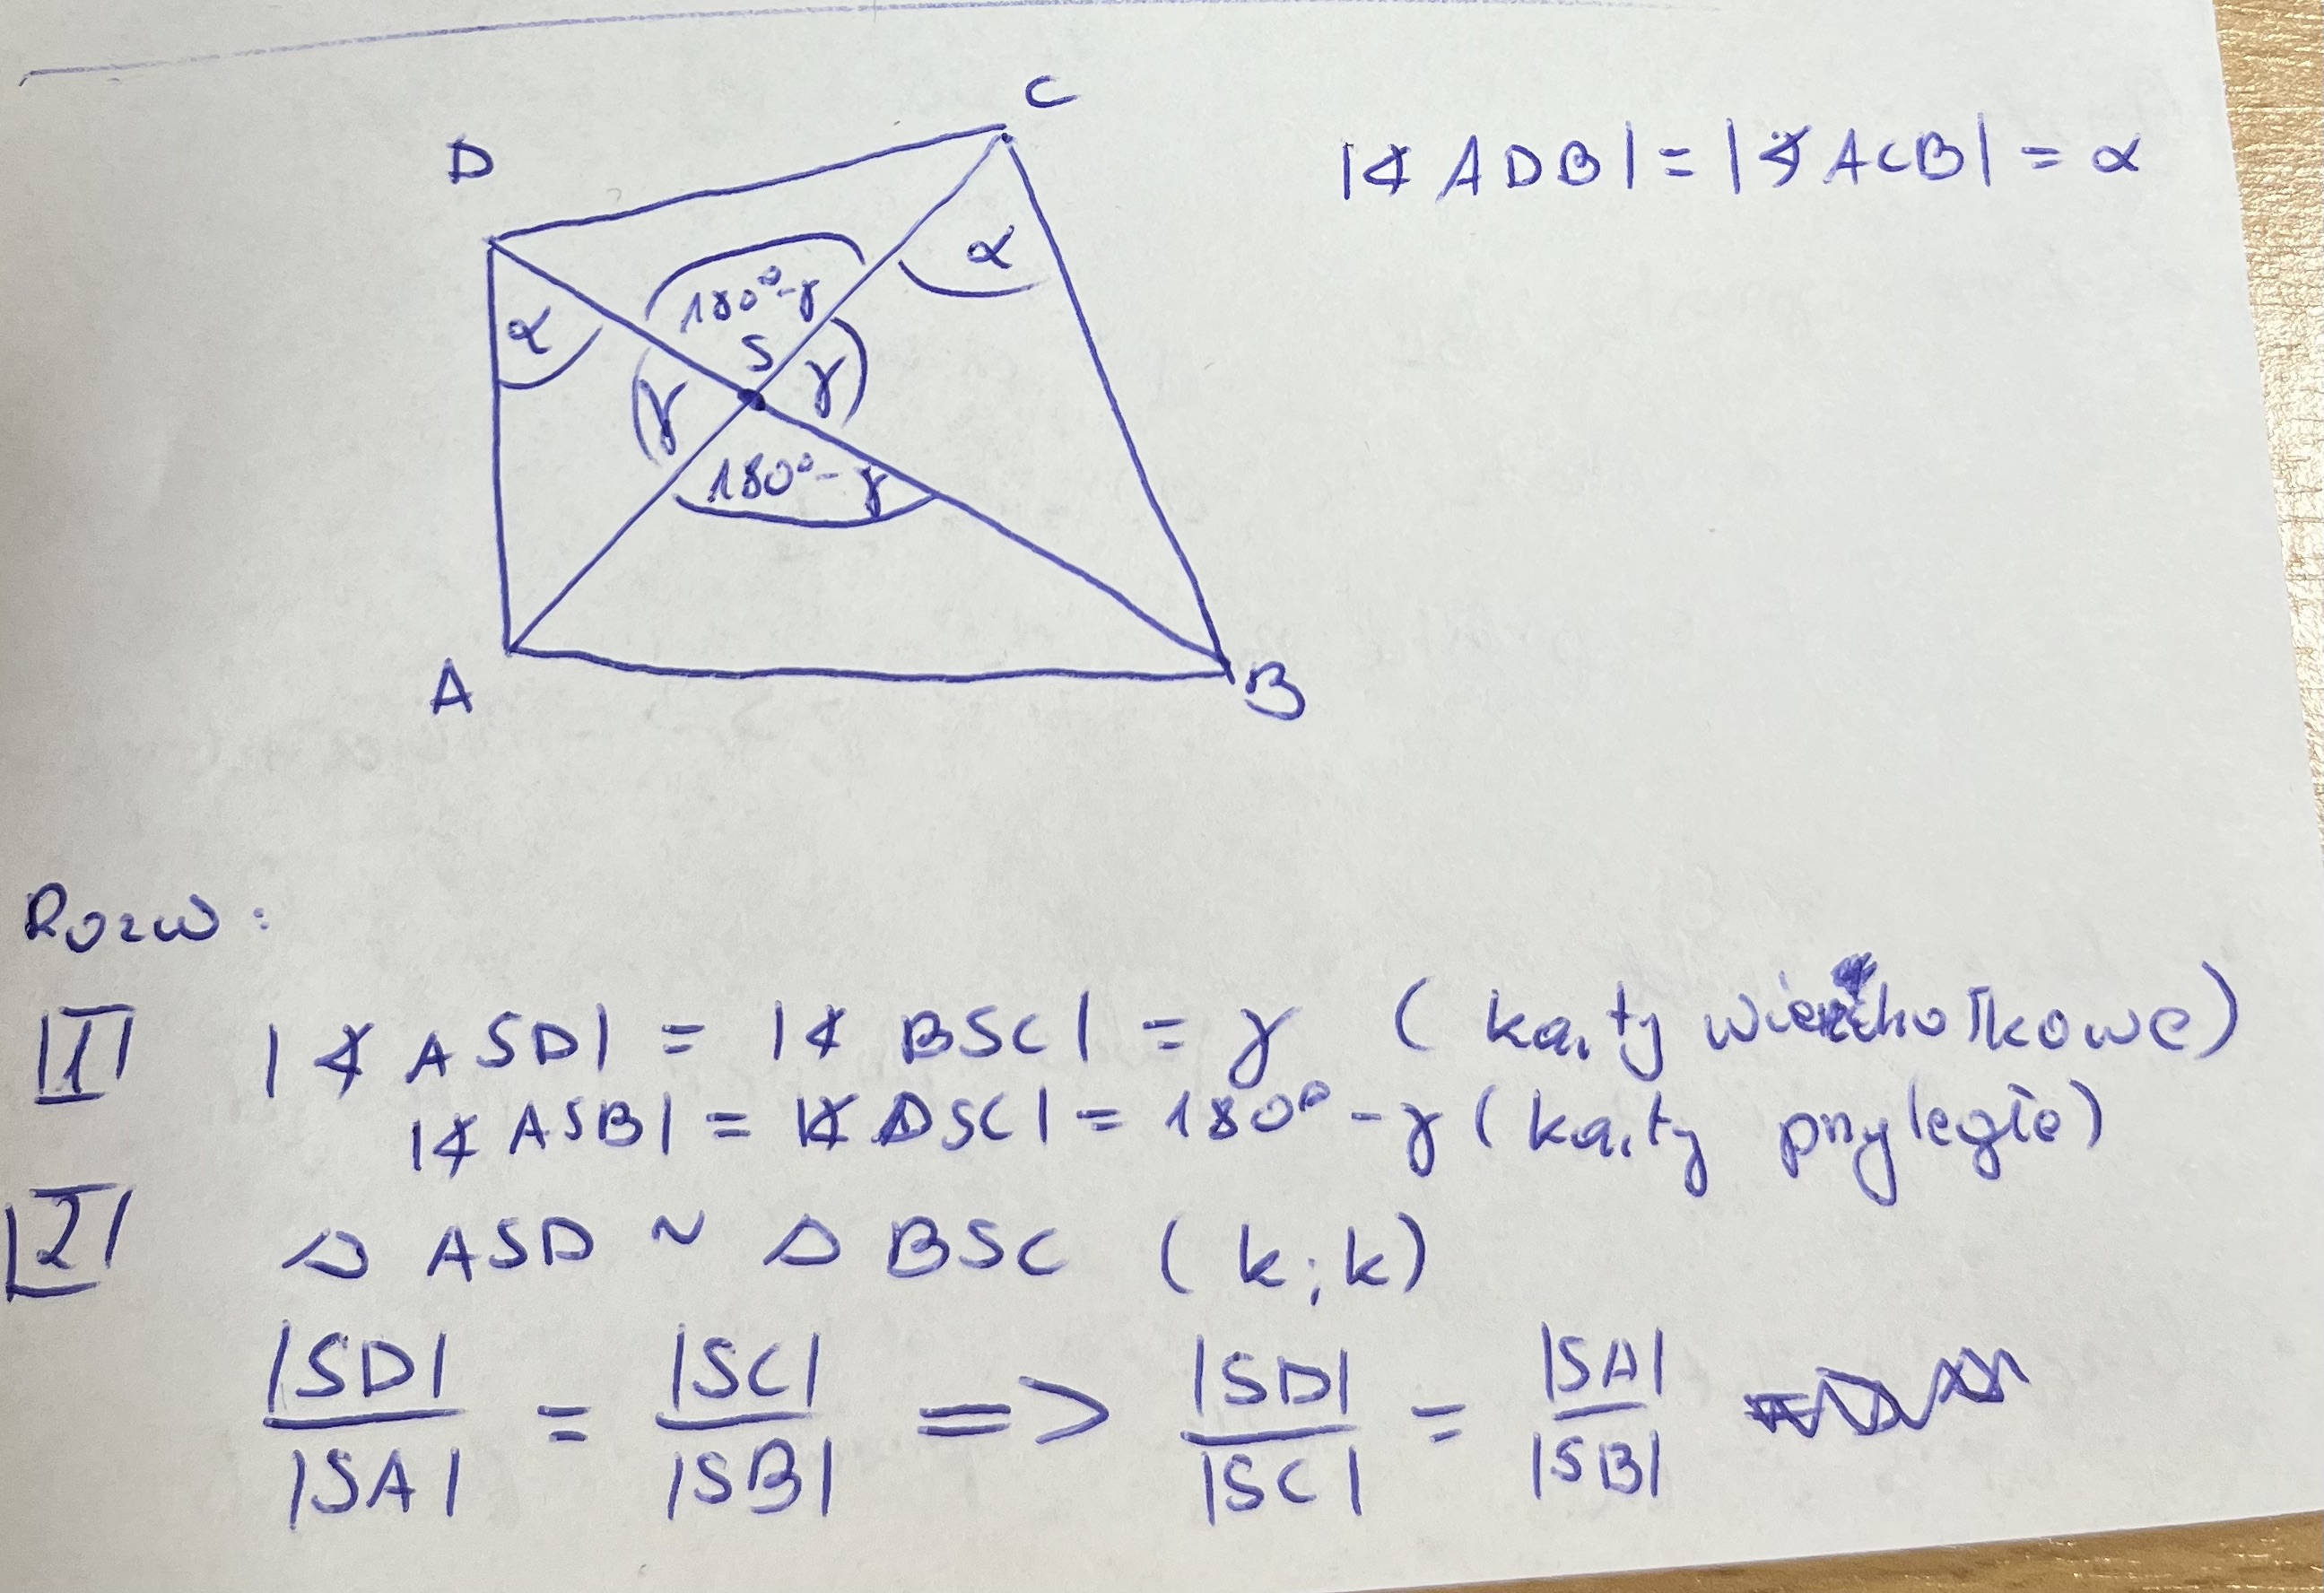 C
D
|∢ ADB| = |∢ ACB| = α
α
180°-γ
α
S
γ
γ
180°-γ
A
B
Rozw:
|1| |∢ ASD| = |∢ BSC| = γ (kąty wierzchołkowe)
|∢ ASB| = |∢ DSC| = 180° - γ (kąty przyległe)
|2| △ ASD ~ △ BSC (k;k)
|SD|/|SA| = |SC|/|SB| => |SD|/|SC| = |SA|/|SB|